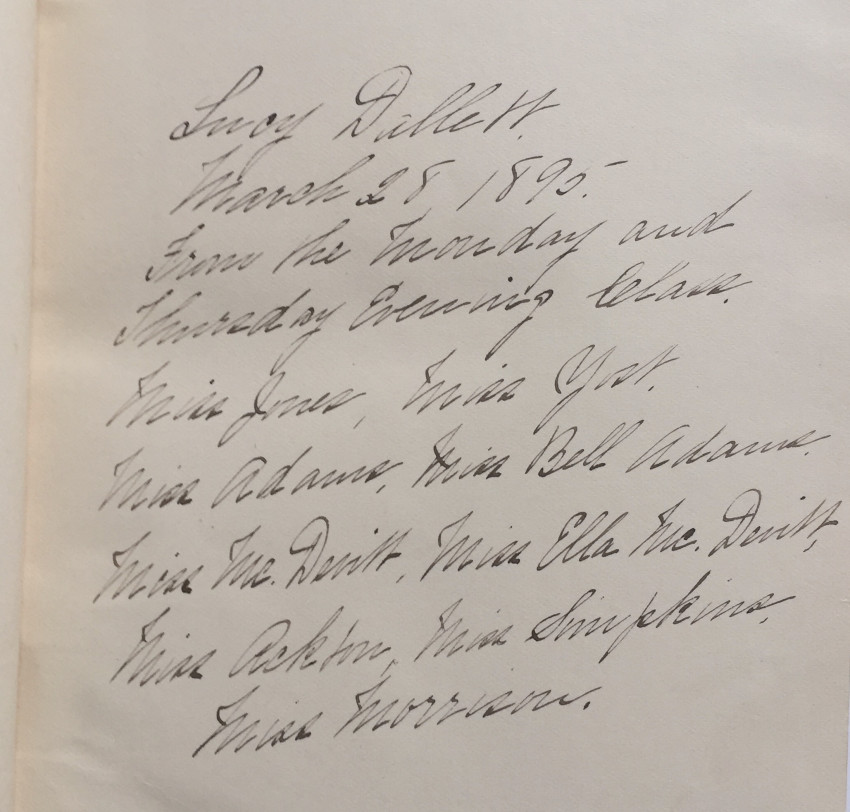 Lucy Dallett.
March 28, 1895.
From the Monday and
Thursday Evening Class.
Miss Jones, Miss Yost.
Miss Adams, Miss Bell Adams.
Miss Mc. Devitt, Miss Ella Mc. Devitt,
Miss Ackton, Miss Simpkins,
Miss Morrison.